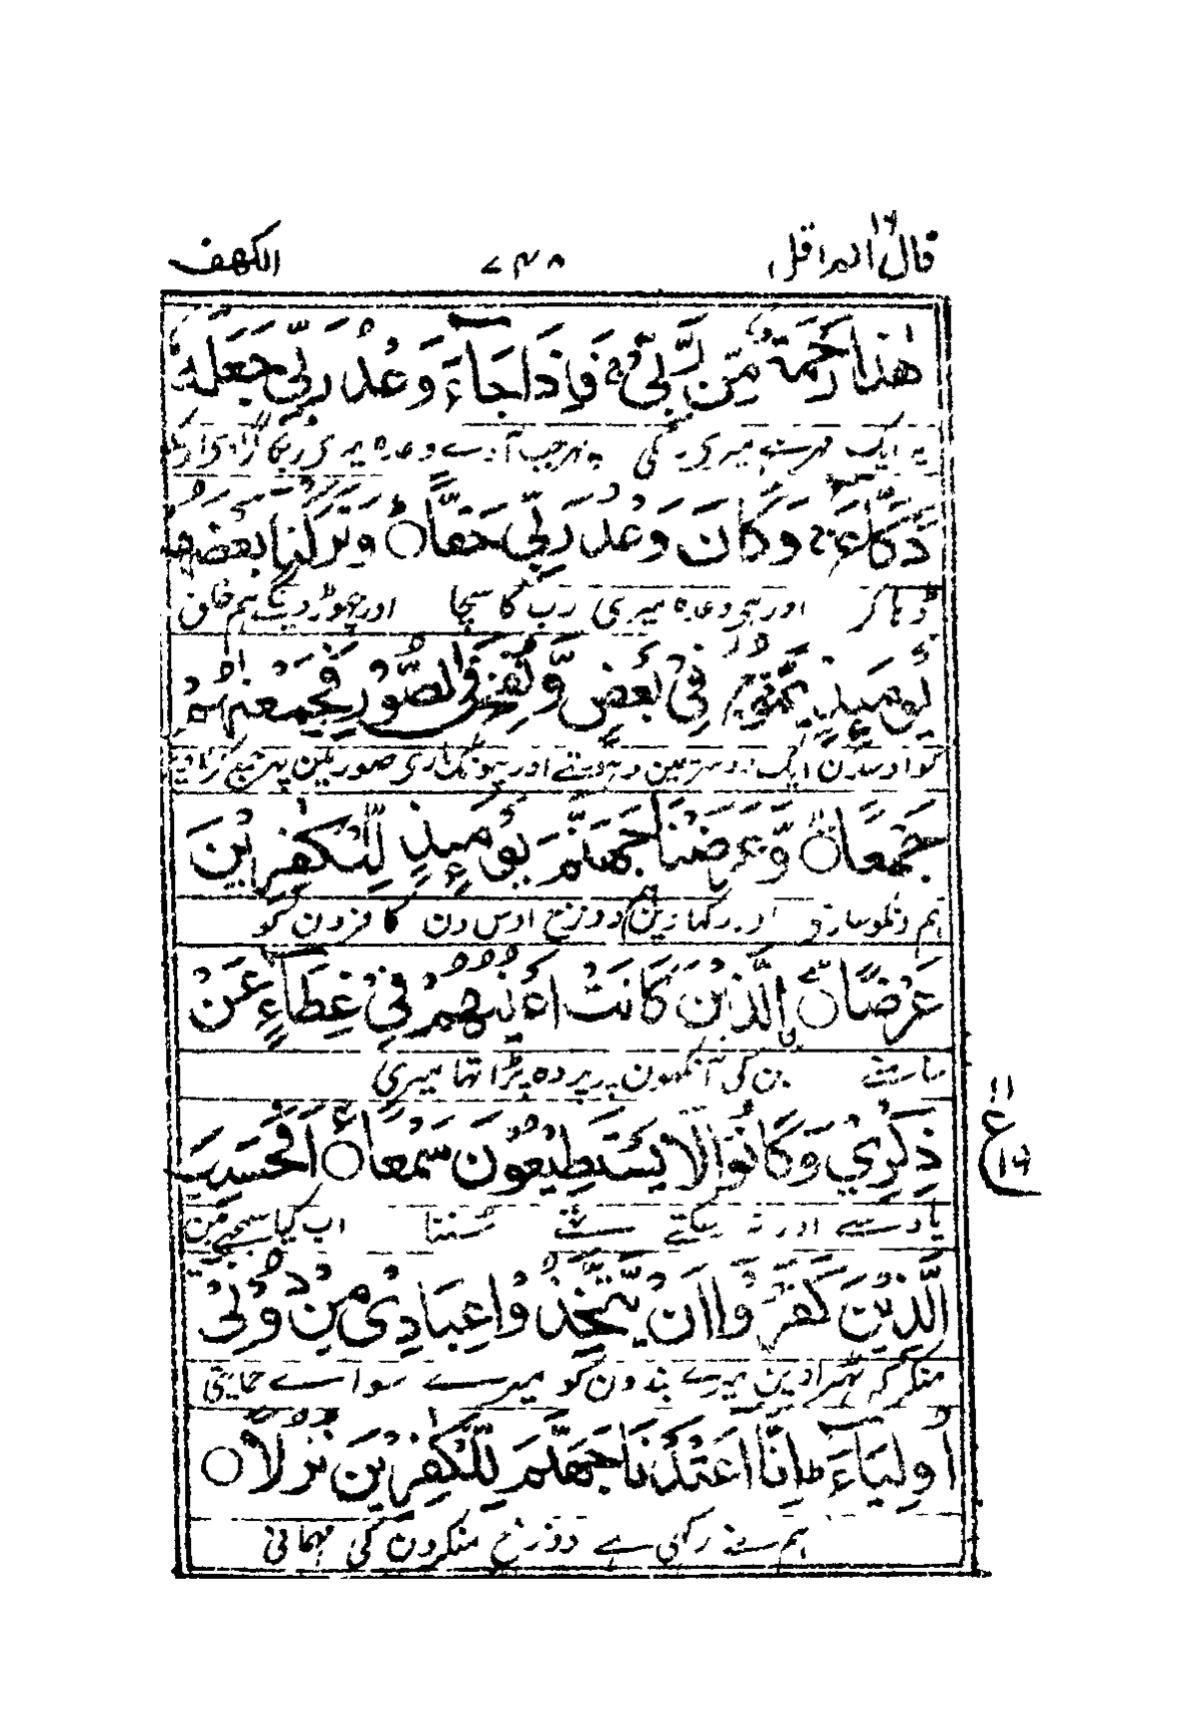 قال الم اقل ١٦
٧٤٨
الكهف
هٰذَا رَحْمَةٌ مِّنْ رَّبِّيْ ۚ فَاِذَا جَآءَ وَعْدُ رَبِّيْ جَعَلَهٗ
یہ ایک مہر ہے میری رب کی پہر جب آوے وعدہ میری رب کا
دَكَّآءَ ۚ وَكَانَ وَعْدُ رَبِّيْ حَقًّا ۝ وَتَرَكْنَا بَعْضَهُمْ
ڈہاکر اور ہی وعدہ میری رب کا سچا اور چھوڑ دینگے ہم خلق
يَوْمَئِذٍ يَّمُوْجُ فِيْ بَعْضٍ وَّنُفِخَ فِي الصُّوْرِ فَجَمَعْنٰهُمْ
کو اوسدن ایک دوسرمین دہستے اور پہونک ماری صور مین پہر جمع
جَمْعًا ۝ وَّعَرَضْنَا جَهَنَّمَ يَوْمَئِذٍ لِّلْكٰفِرِيْنَ
ہم اور دکہادین ہم دوزخ اوس دن کافرون کو
عَرْضًا ۝ اِلَّذِيْنَ كَانَتْ اَعْيُنُهُمْ فِيْ غِطَآءٍ عَنْ
سامنے جن کی آنکھون پر پردہ پڑا تہا میری
ذِكْرِيْ وَكَانُوْا لَا يَسْتَطِيْعُوْنَ سَمْعًا ۝ اَفَحَسِبَ
یاد سے اور نہ سکتے تھے سننا اب کیا سمجھے ہین
الَّذِيْنَ كَفَرُوْا اَنْ يَّتَّخِذُوْا عِبَادِيْ مِنْ دُوْنِيْ
منکر کہ ٹہرادین میرے بندون کو میرے سواے حمایتی
اَوْلِيَآءَ ؕ اِنَّا اَعْتَدْنَا جَهَنَّمَ لِلْكٰفِرِيْنَ نُزُلًا ۝
ہم نے رکہی ہے دوزخ منکرون کی مہمانی
١١
ع
١٦